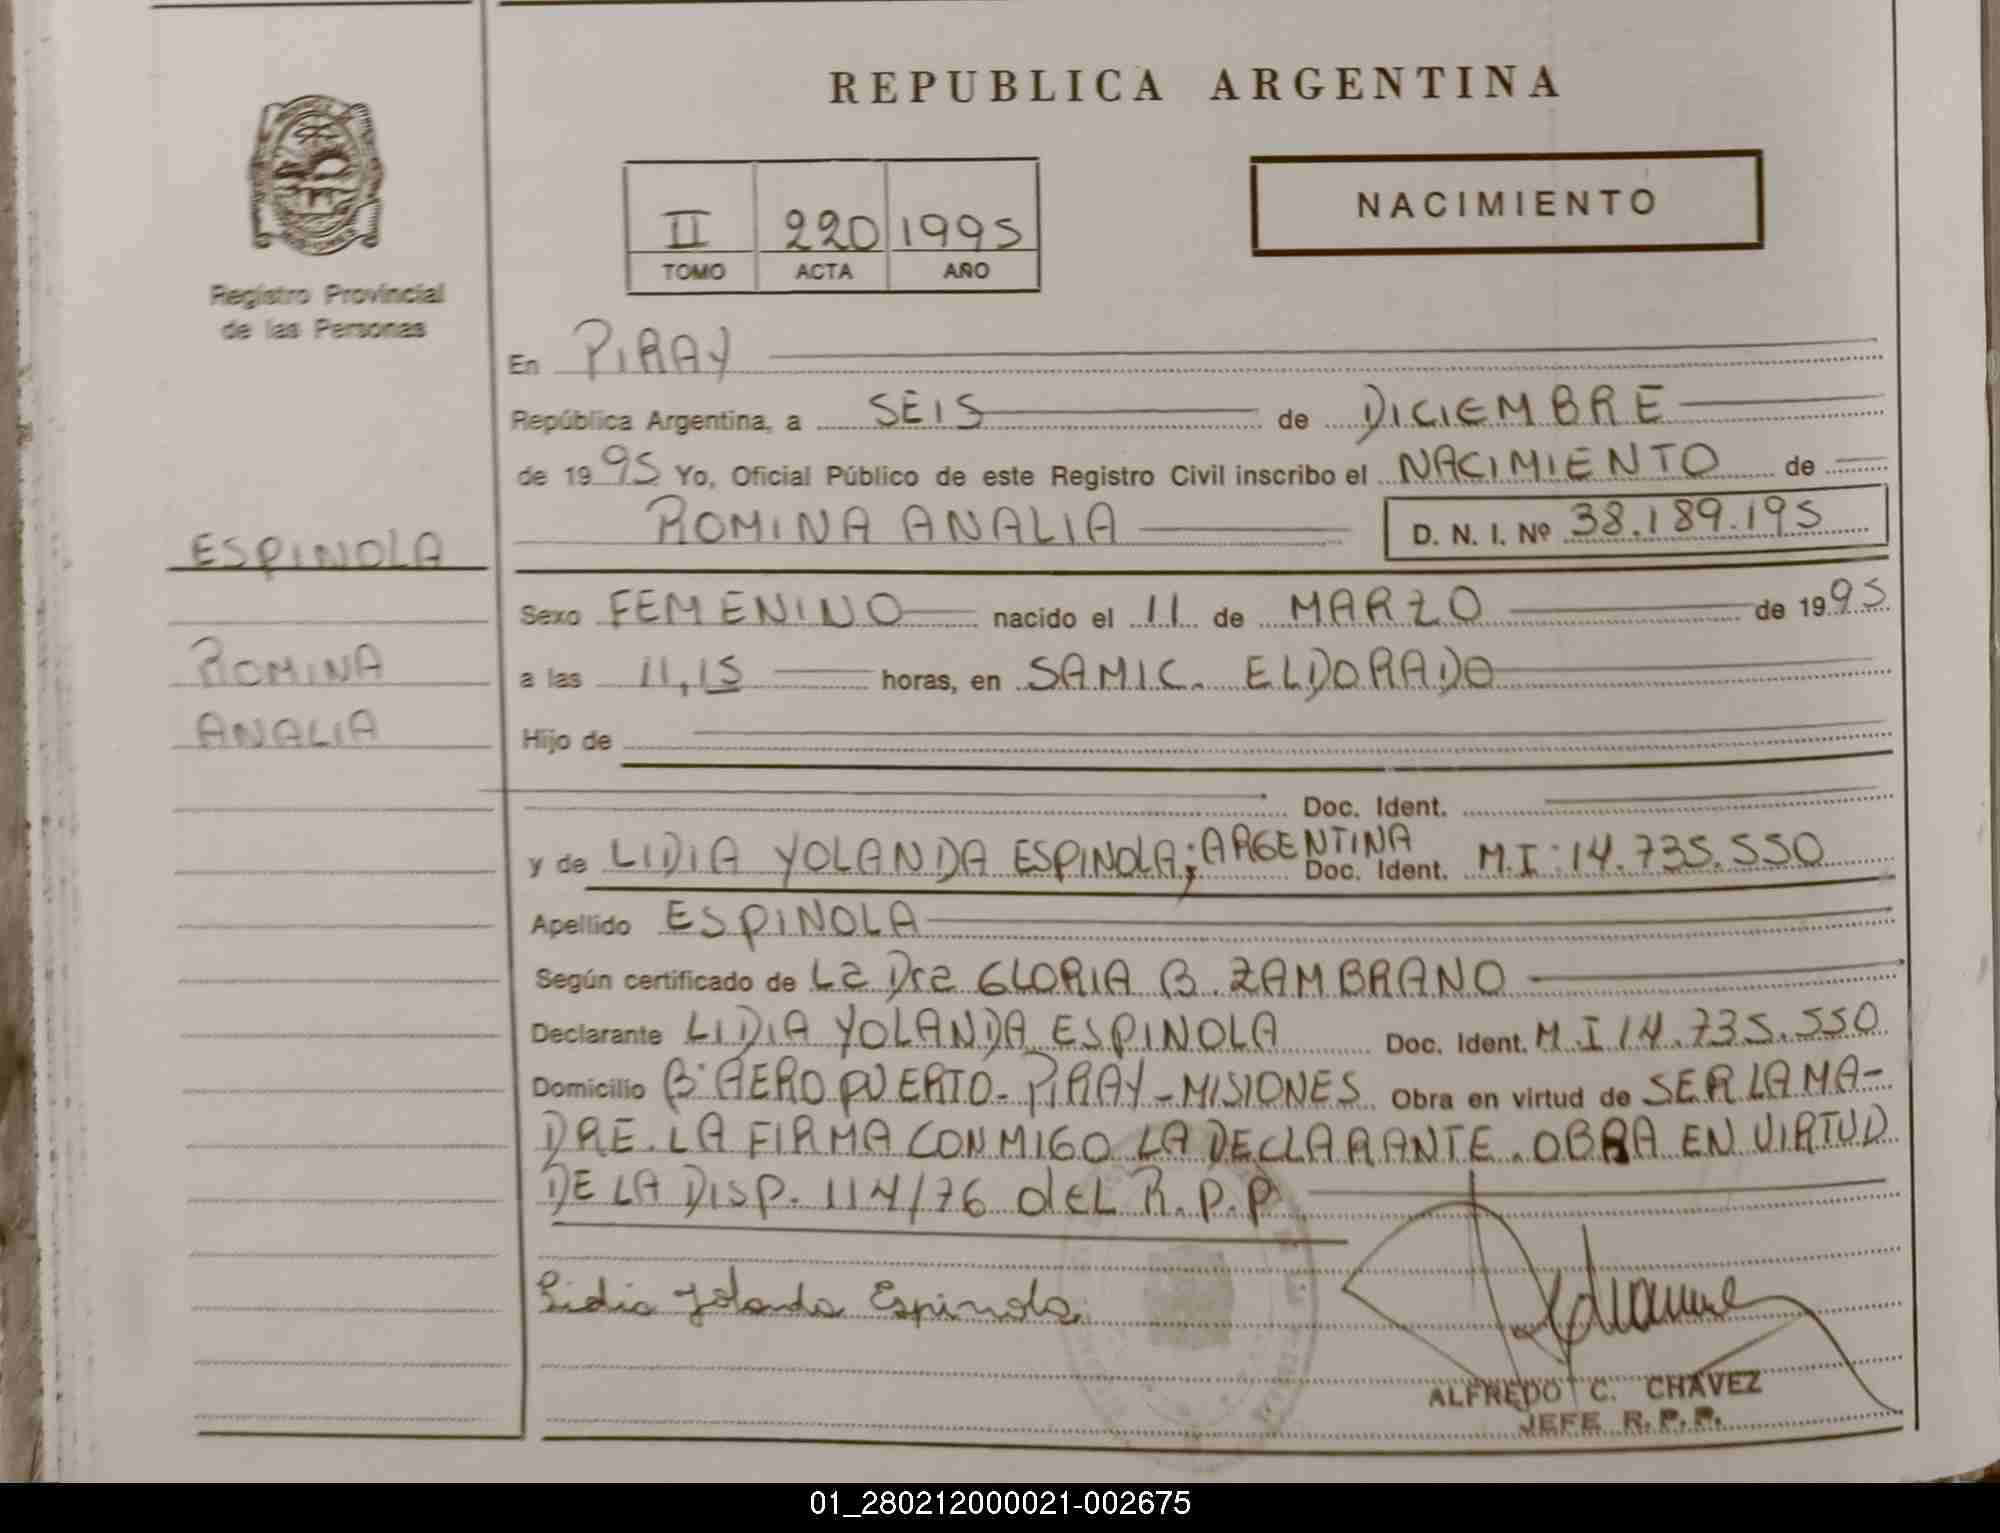 REPUBLICA ARGENTINA
II 220 1995
TOMO ACTA AÑO
NACIMIENTO
Registro Provincial
de las Personas
ESPINOLA
ROMINA
ANALIA
En PIRAY
República Argentina, a SEIS de DICIEMBRE
de 1995 Yo, Oficial Público de este Registro Civil inscribo el NACIMIENTO de
ROMINA ANALIA D. N. I. Nº 38.189.195
Sexo FEMENINO nacido el 11 de MARZO de 1995
a las 11,15 horas, en SAMIC. ELDORADO
Hijo de
Doc. Ident.
y de LIDIA YOLANDA ESPINOLA; ARGENTINA Doc. Ident. M.I: 14.735.550
Apellido ESPINOLA
Según certificado de La Dra GLORIA B. ZAMBRANO
Declarante LIDIA YOLANDA ESPINOLA Doc. Ident. M.I 14.735.550
Domicilio Bº AEROPUERTO- PIRAY-MISIONES Obra en virtud de SER LA MA-
DRE. LA FIRMA CONMIGO LA DECLARANTE. OBRA EN VIRTUD
DE LA DISP. 114/76 dEL R.P.P
Lidia Yolanda Espinola.
ALFREDO C. CHAVEZ
JEFE R.P.P.
01_280212000021-002675